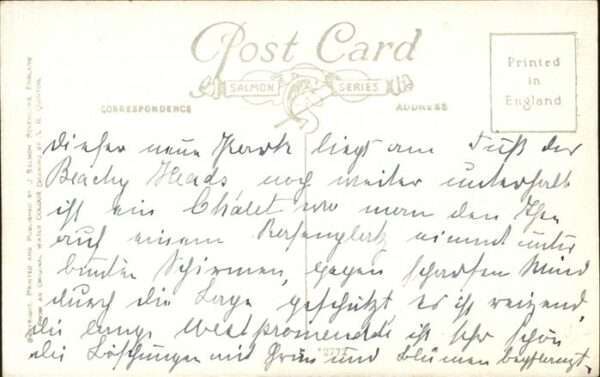 Post Card
SALMON SERIES
CORRESPONDENCE
ADDRESS
Printed
in
England
dieser neue Park liegt am Fuß der
Beachy Heads noch weiter unterhalb
ist ein Châlet wo man den Thee
auf einem Rasenplatz nimmt unter
bunten Schirmen, gegen scharfen Wind
durch die Lage geschützt es ist reizend,
die lange Westpromenade ist sehr schön
die Böschungen mit Grün und Blumen bepflanzt.